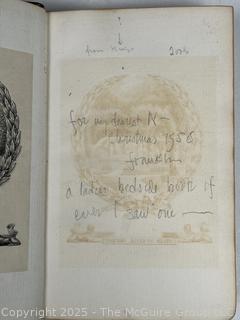 from
for my dearest K-
Christmas 1956
Franklin
a ladies bedside book if
ever I saw one —
Copyright 2025 - The McGuire Group LLC